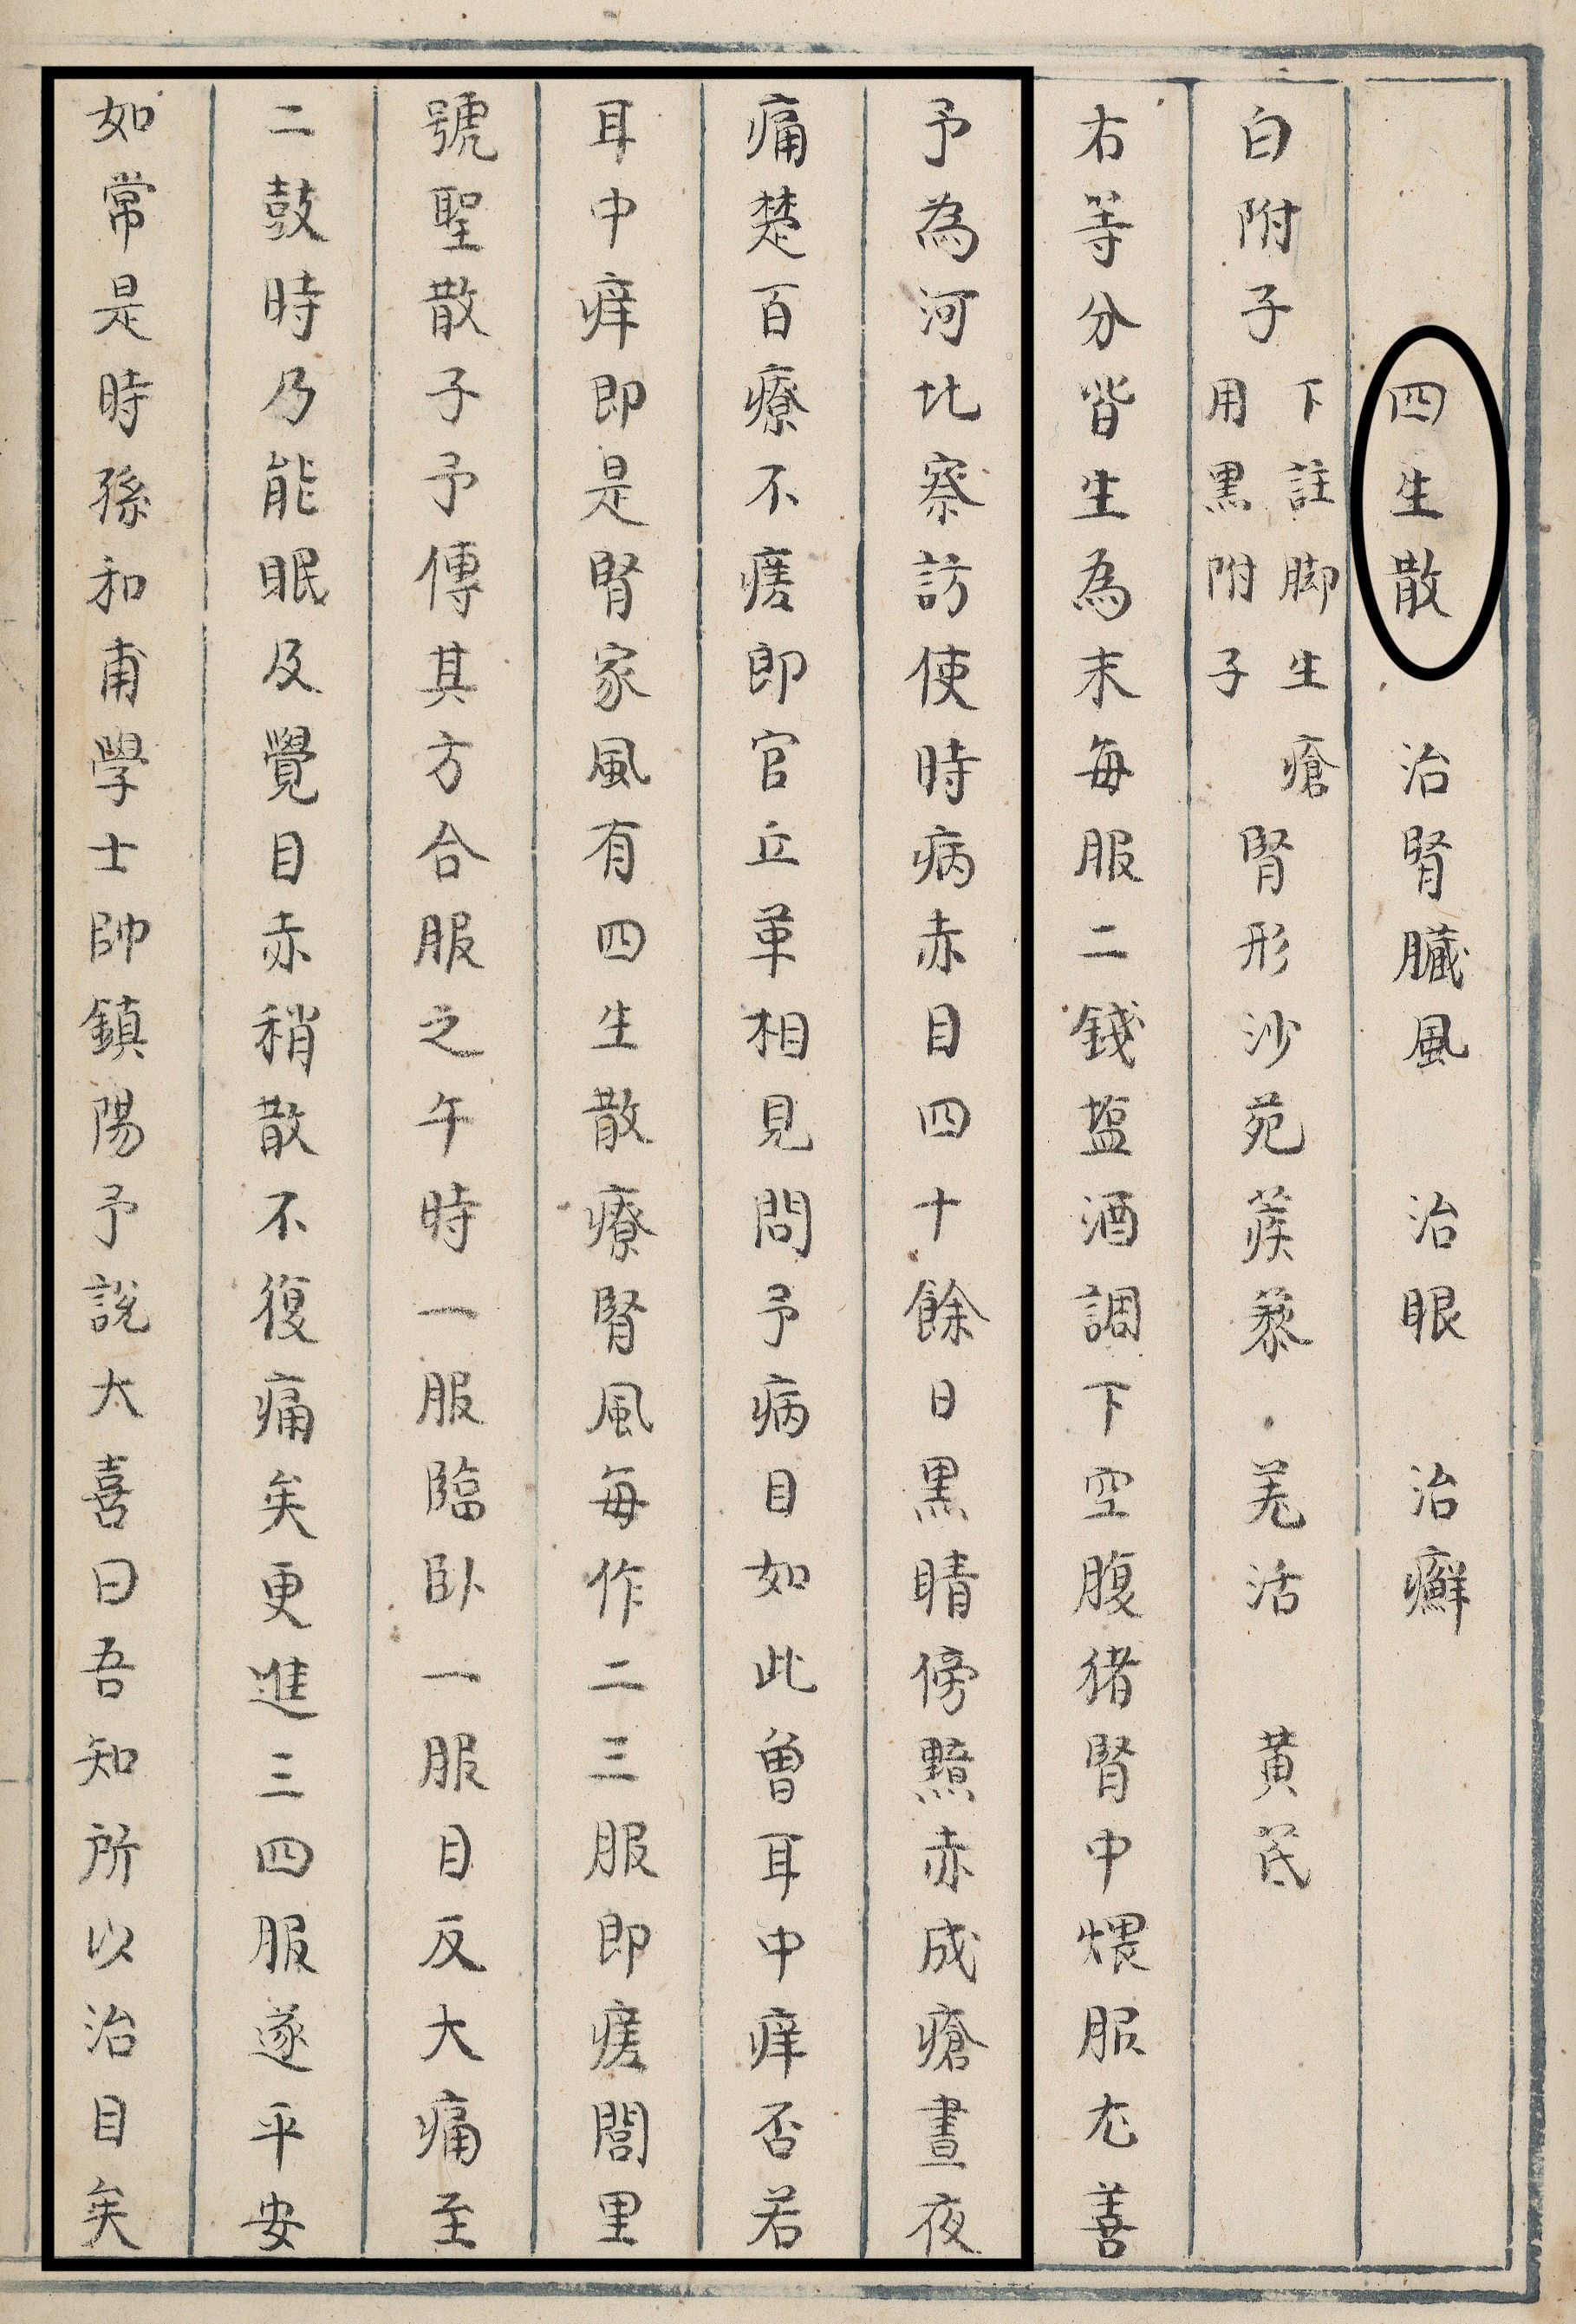 四生散 治腎臟風 治眼 治癬
白附子 下註脚生瘡用黑附子 腎形沙苑蒺蔾 羌活 黄芪
右等分皆生為末每服二錢盐酒調下空腹猪腎中煨服尤善
予為河北察訪使時病赤目四十餘日黒睛傍黯赤成瘡晝夜
痛楚百療不瘥即官丘革相見問予病目如此曽耳中痒否若
耳中痒即是腎家風有四生散療腎風每作二三服即瘥閭里
號聖散子予傳其方合服之午時一服臨卧一服目反大痛至
二鼓時乃能眠及覺目赤稍散不復痛矣更進三四服遂平安
如常是時孫和甫學士帥鎮陽予說大喜曰吾知所以治目矣